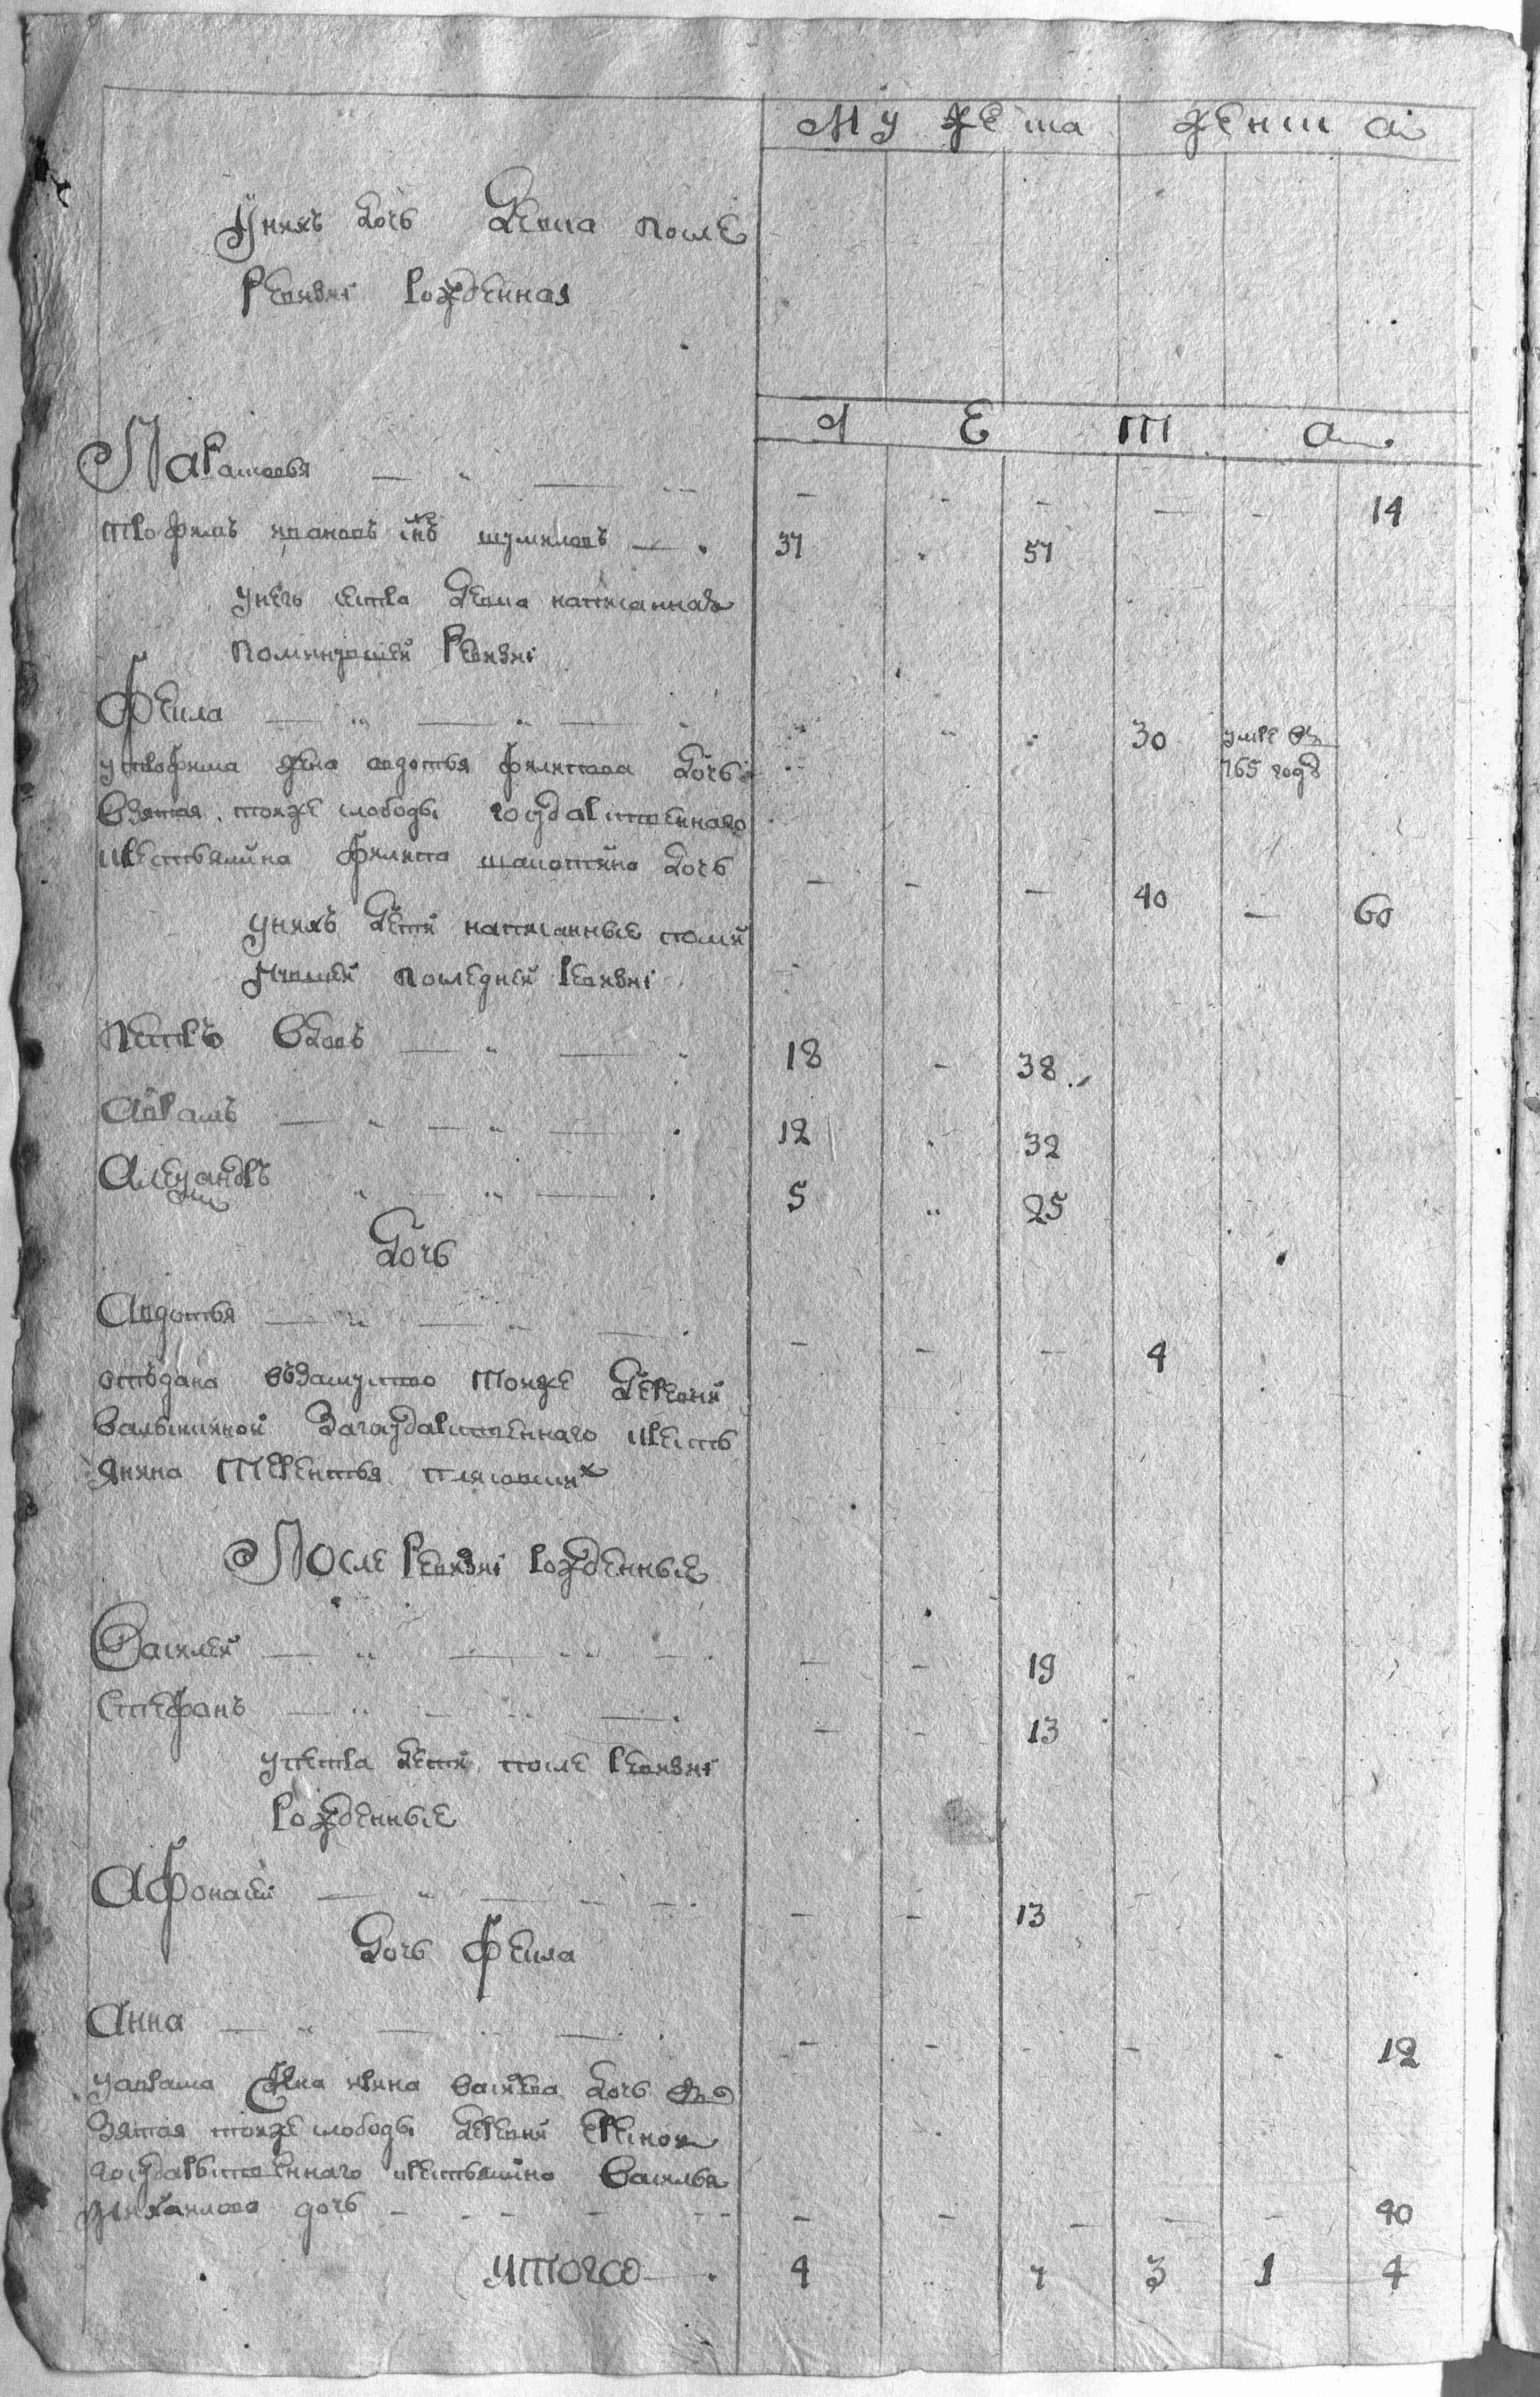 Мужеска женска
Унихъ дочь девка после
Ревизиi Рожденная
л е т а
Парасковья — — 14
Трофимъ ивановъ снъ шумиловъ — 37 57
унего сестра девка написанная
Помянувшей Ревизиi
Фекла — — 30 умре въ
765 году
утрофима жена авдотья филипова дочь
взятая тояже слободы государственнаго
крестьянина филипа дочь — — — 40 — 60
унихъ дети написанные помя
нувшей последней Ревизиi
Петръ вдовъ — 18 — 38
Авраамъ — 12 32
Александръ — 5 25
Дочь
Авдотья — — — — 4
отъдана възамуство тояже деревни
Загосударственнаго кресть
янина Терентья
После Ревизиi Рожденные
Василей — — — 19
Стефанъ — — — 13
упетра дети после Ревизиi
Рожденные
Афонасей — — — 13
Дочь Фекла
Анна — — — — 12
уаврама жена ирина васильева дочь
Взятая тояже слободы деревни
государьственнаго крестьянина Василья
Михаилова дочь — — — — — — 40
Итого — 4 7 3 1 4